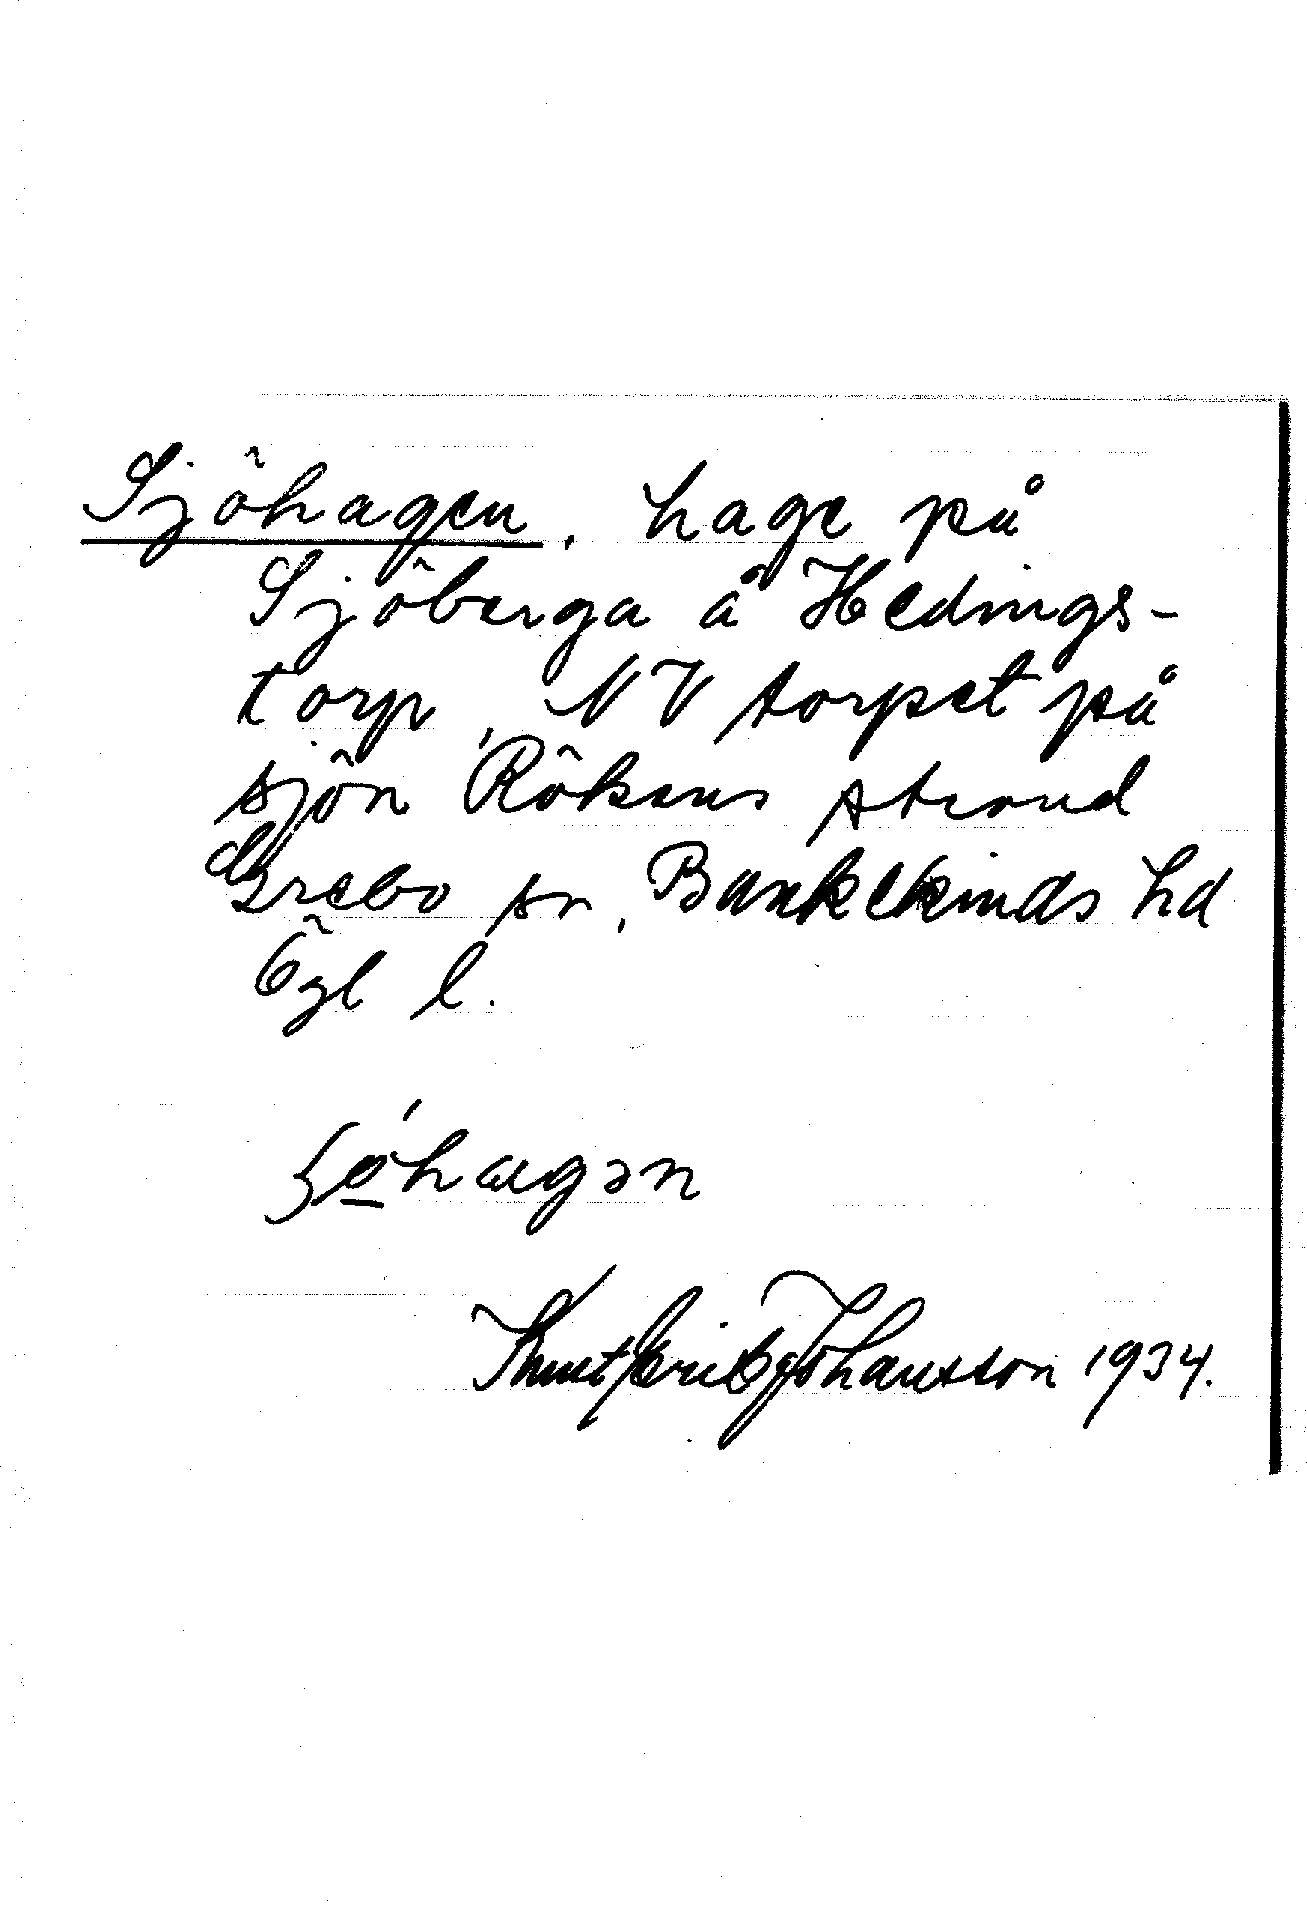 Sjöhagen, hage på
Sjöberga å Hedings-
torp, NV torpet på
sjön Rökens strand
Grebo sn, Bankekinds hd
Ögl l.
hagən
Knut Erik Johansson 1934.